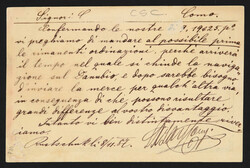 Signori C. CSC Como.
Confermando le nostre
vi preghiamo di mandare al possibile prima
le rimanenti ordinazioni, perchè arriverà
il tempo nel quale si chiude la naviga
zione sul Danubio e dopo sarebbe bisogno
d'inviare la merce per qualche altra via,
in conseguenza di che, possono risultare
grandi differenze al nostro disavantaggio.
Intanto vi ben distintamente riveri
amo.